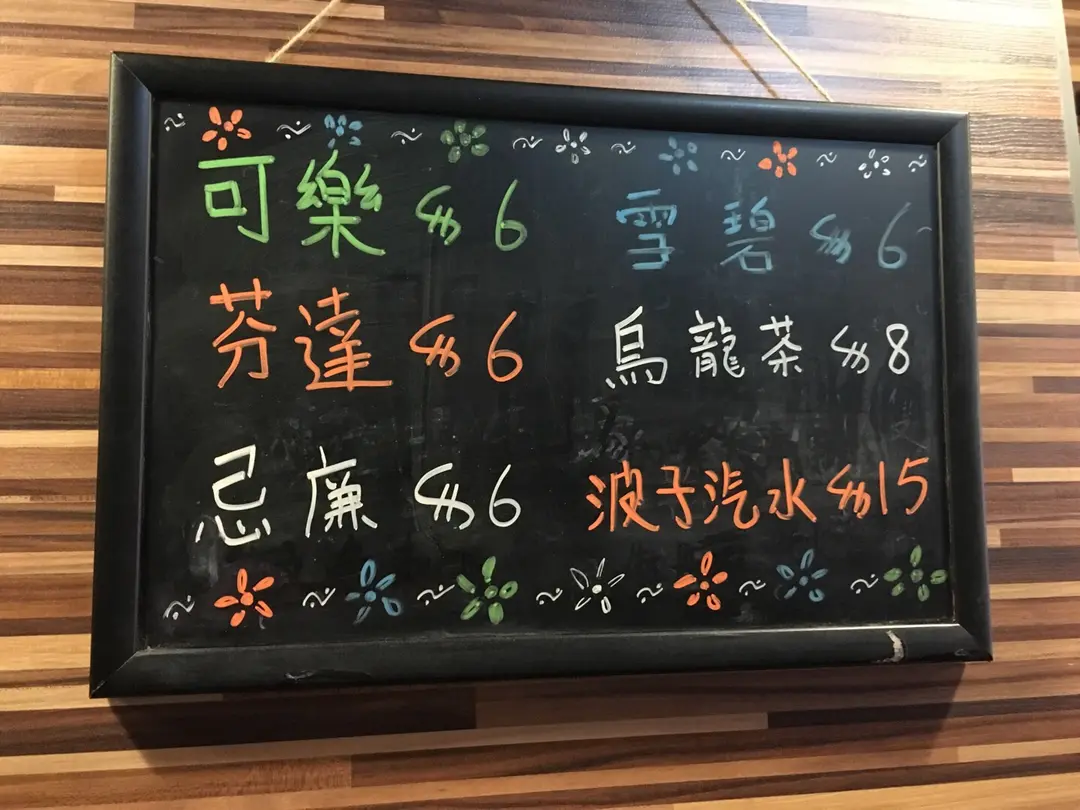 可樂 $6 雪碧 $6
芬達 $6 烏龍茶 $8
忌廉 $6 波子汽水 $15